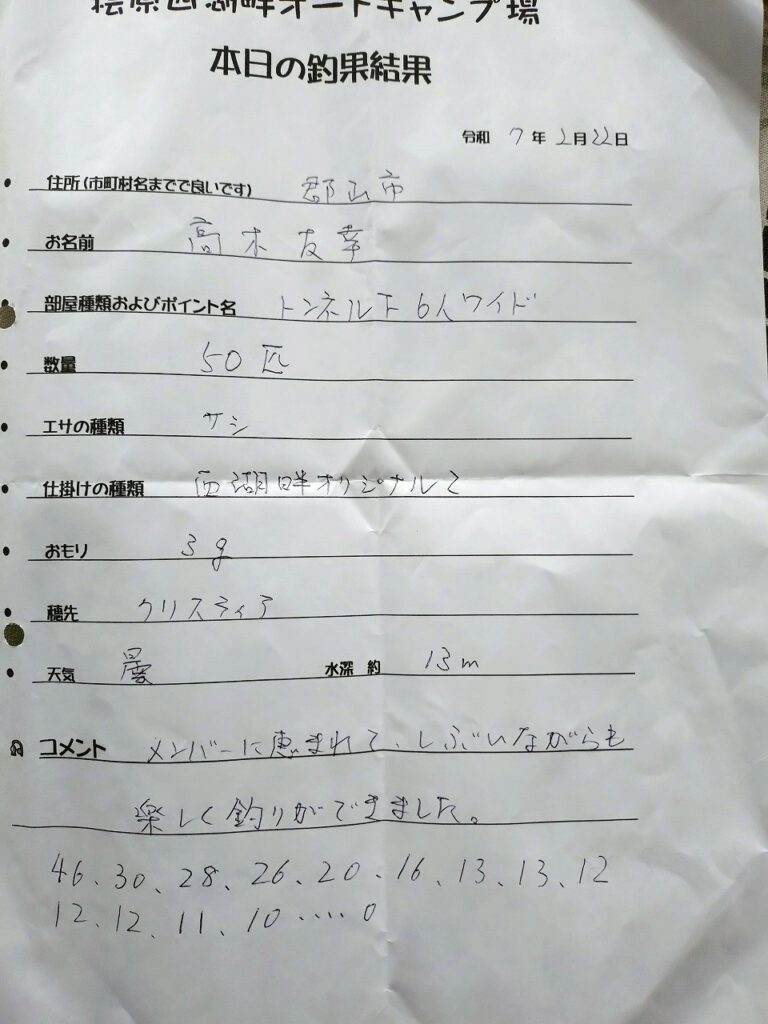 桧原西湖畔オートキャンプ場
本日の釣果結果
令和 7 年 2月22日
住所(市町村名までで良いです) 郡山市
お名前 高木友幸
部屋種類およびポイント名 トンネル下 6人ワイド
数量 50匹
エサの種類 サシ
仕掛けの種類 西湖畔オリジナル2
おもり 3g
穂先 クリスティア
天気 曇 水深 約 13m
コメント メンバーに恵まれて、しぶいながらも
楽しく釣りができました。
46、30、28、26、20、16、13、13、12
12、12、11、10‥‥0